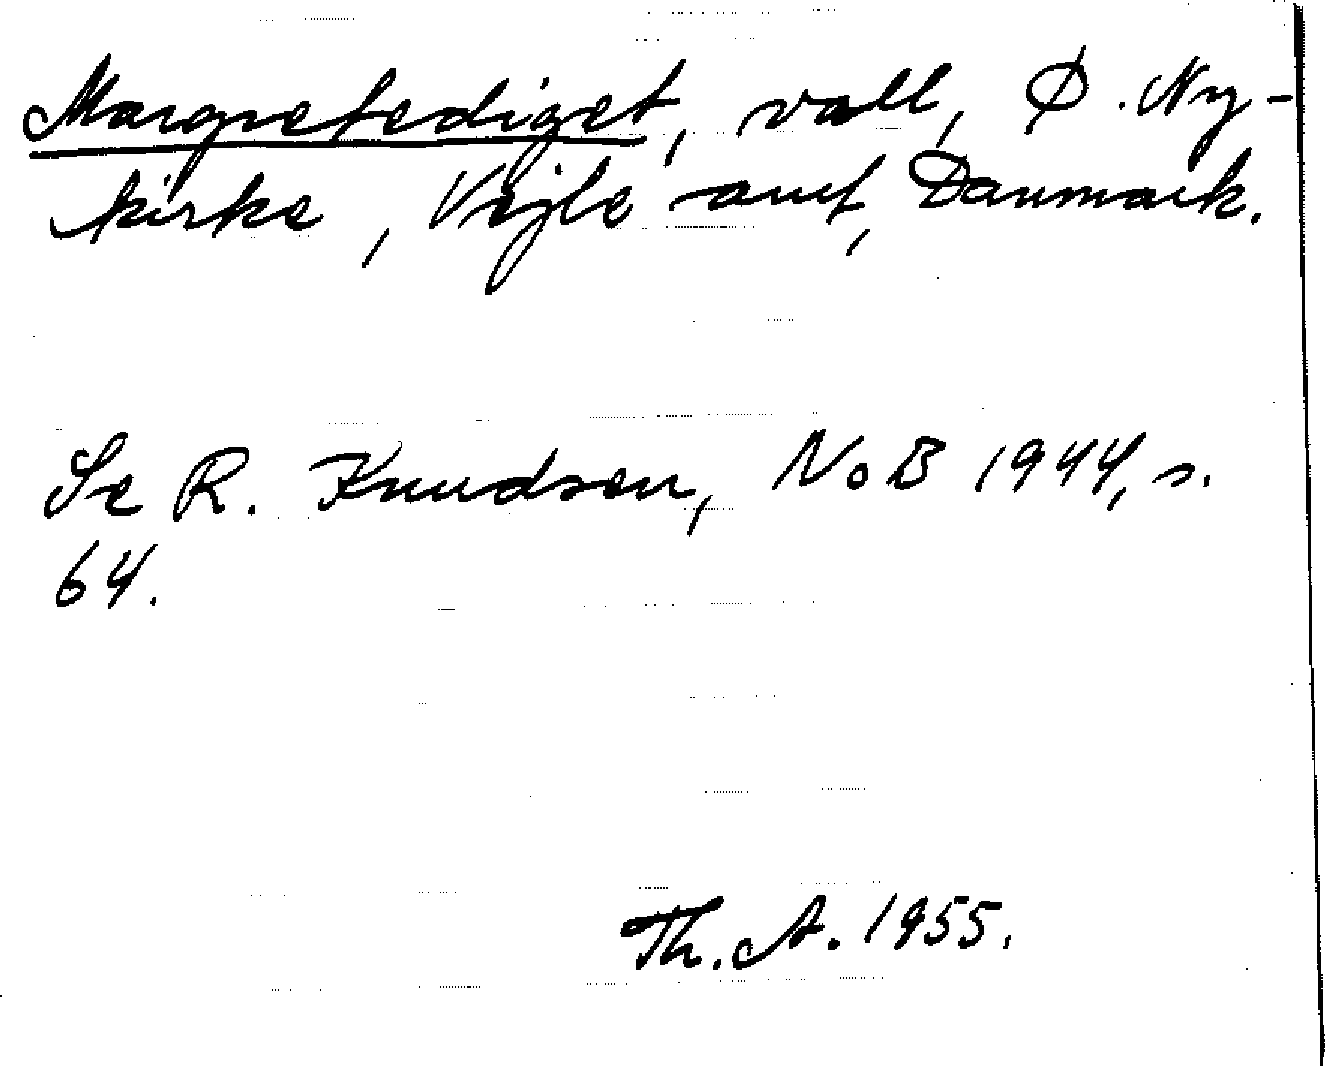 Margretediget, vall, Ø. Ny-
kirke, Vejle amt, Danmark.
Se R. Knudsen, NoB 1944, s.
64.
Th. A. 1955.